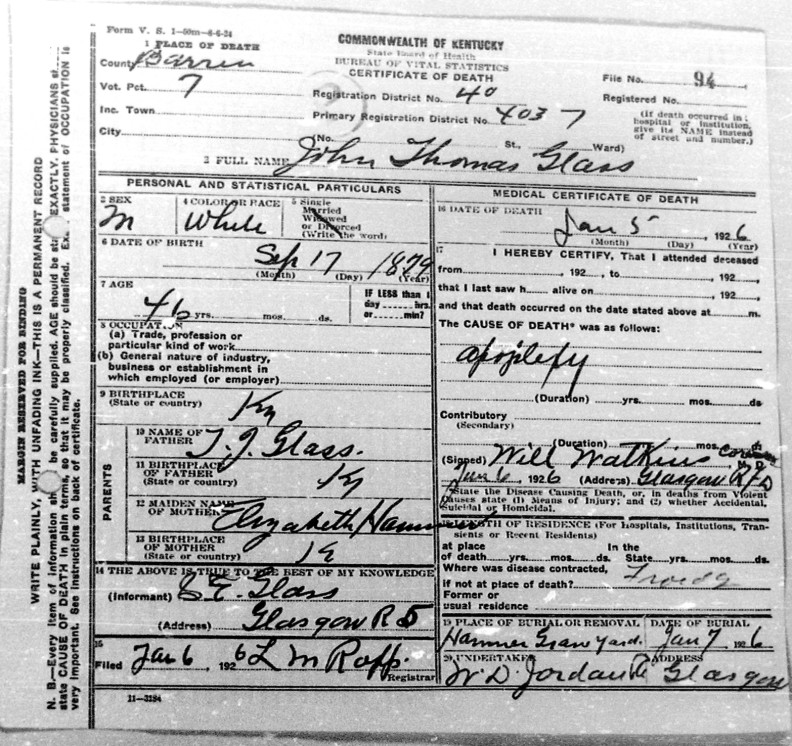 Form V. S. 1—50m—6-6-24
1 PLACE OF DEATH
County Barren
Vot. Pct. 7
Inc. Town
City
COMMONWEALTH OF KENTUCKY
State Board of Health
BUREAU OF VITAL STATISTICS
CERTIFICATE OF DEATH
Registration District No. 40
Primary Registration District No. 4037
File No. 94
Registered No.
(If death occurred in a
hospital or institution,
give its NAME instead
of street and number.)
(No. St., Ward)
2 FULL NAME John Thomas Glass
PERSONAL AND STATISTICAL PARTICULARS
3 SEX
M
4 COLOR OR RACE
White
5 Single
Married
Widowed
or Divorced
(Write the word)
6 DATE OF BIRTH
Sep 17 1879
(Month) (Day) (Year)
7 AGE
46 yrs. mos. ds.
IF LESS than 1
day hrs.
or min?
8 OCCUPATION
(a) Trade, profession or
particular kind of work
(b) General nature of industry,
business or establishment in
which employed (or employer)
9 BIRTHPLACE
(State or country)
Ky
PARENTS
10 NAME OF
FATHER
T. J. Glass.
11 BIRTHPLACE
OF FATHER
(State or country)
Ky
12 MAIDEN NAME
OF MOTHER
Elizabeth Hammer
13 BIRTHPLACE
OF MOTHER
(State or country)
14 THE ABOVE IS TRUE TO THE BEST OF MY KNOWLEDGE
(Informant) Glass
(Address) Glasgow R 5
15
Filed Jan 6, 1926 L M Ropp.
Registrar
11—3184
MEDICAL CERTIFICATE OF DEATH
16 DATE OF DEATH
Jan 5 1926
(Month) (Day) (Year)
17 I HEREBY CERTIFY, That I attended deceased
from , 192 , to , 192 ,
that I last saw h alive on , 192 ,
and that death occurred on the date stated above at m.
The CAUSE OF DEATH* was as follows:
(Duration) yrs. mos. ds.
Contributory
(Secondary)
(Duration) mos. ds
(Signed) Will Watkins M. D.
Jan 6, 1926 (Address) Glasgow RFD
*State the Disease Causing Death, or, in deaths from Violent
Causes state (1) Means of Injury; and (2) whether Accidental,
Suicidal or Homicidal.
LENGTH OF RESIDENCE (For Hospitals, Institutions, Tran-
sients or Recent Residents)
at place In the
of death yrs. mos. ds. State yrs. mos. ds.
Where was disease contracted,
if not at place of death?
Former or
usual residence
19 PLACE OF BURIAL OR REMOVAL
Hammer Graw yard.
DATE OF BURIAL
Jan 7 1926
20 UNDERTAKER
W. D. Jordan
ADDRESS
Glasgow
MARGIN RESERVED FOR BINDING
WRITE PLAINLY, WITH UNFADING INK—THIS IS A PERMANENT RECORD
N. B.—Every item of information be carefully supplied. AGE should be EXACTLY. PHYSICIANS
state CAUSE OF DEATH in plain terms, so that it may be properly classified. statement of OCCUPATION is
very important. See instructions on back of certificate.